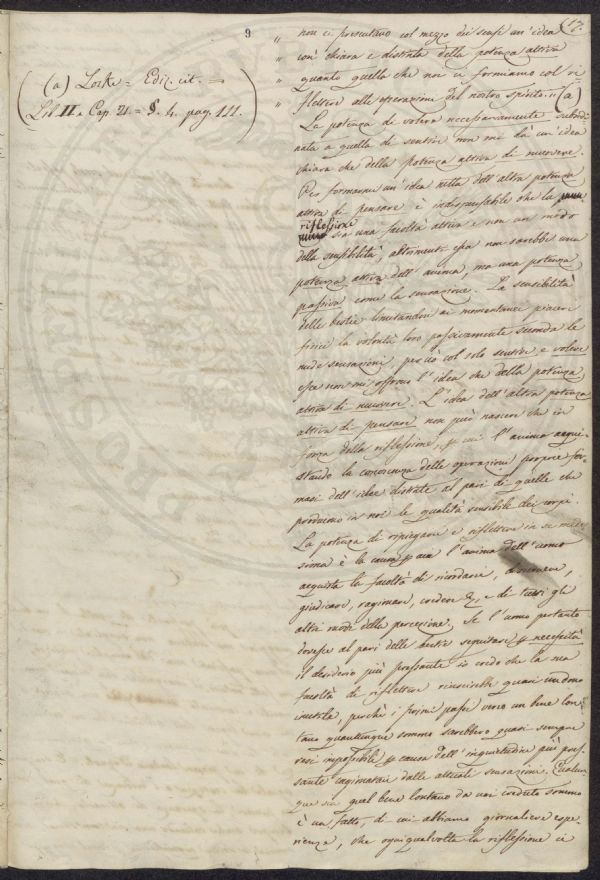 9
17.
(a) Locke = Ediz. cit. =
Lib. II. Cap. 21. = §. 4. pag. 111.
" non ci presentano col mezzo dei sensi un'idea
" così chiara e distinta della potenza attiva
" quanto quella che noi ci formiamo col ri
" flettere alle operazioni del nostro spirito " (a)
La potenza di volere necessariamente subordi
nata a quella di sentire non mi dà un'idea
chiara che della potenza attiva di muovere.
Per formarmi un'idea netta dell'altra potenza
attiva di pensare è indispensabile che la
riflessione sia una facoltà attiva e non un modo
della sensibilità, altrimenti essa non sarebbe una
potenza attiva dell'anima, ma una potenza
passiva come la sensazione. La sensibilità
delle bestie limitandosi ai momentanei piaceri
fisici la volontà loro passivamente seconda le
nude sensazioni, perciò col solo sentire e volere
esse non mi offrono l'idea che della potenza
attiva di muovere. L'idea dell'altra potenza
attiva di pensare non può nascere che in
forza della riflessione, per cui l'anima acqui-
stando la conoscenza delle operazioni proprie for-
masi dell'idee distinte al pari di quelle che
producono in noi le qualità sensibili dei corpi.
La potenza di ripiegarsi e riflettere in se mede
sima è la causa per cui l'anima dell'uomo
acquista la facoltà di ricordarsi, discernere,
giudicare, ragionare, credere &, e di tutti gli
altri modi della percezione. Se l'uomo pertanto
dovesse al pari delle bestie seguitare per necessità
il desiderio più pressante io credo che la sua
facoltà di riflettere riuscirebbe quasi un dono
inutile, perchè i primi passi verso un bene lon
tano quantunque sommo sarebbero quasi sempre
resi impossibili per causa dell'inquietudine più pres
sante cagionata dalle attuali sensazioni. Qualun
que sia quel bene lontano da noi creduto sommo
è un fatto, di cui abbiamo giornaliera espe
rienza, che ogniqualvolta la riflessione ci